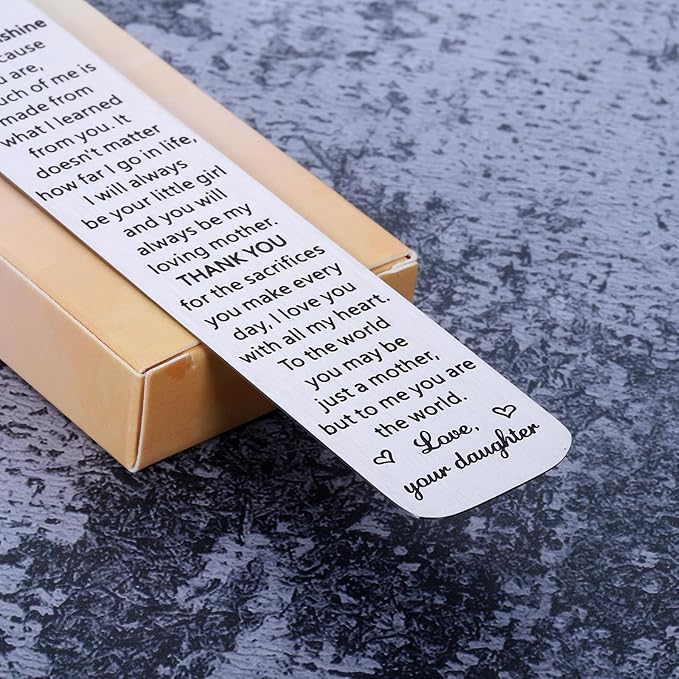 shine
cause
are,
ch of me is
made from
what I learned
from you. It
doesn't matter
how far I go in life,
I will always
be your little girl
and you will
always be my
loving mother.
THANK YOU
for the sacrifices
you make every
day, I love you
with all my heart.
To the world
you may be
just a mother,
but to me you are
the world.
Love,
your daughter